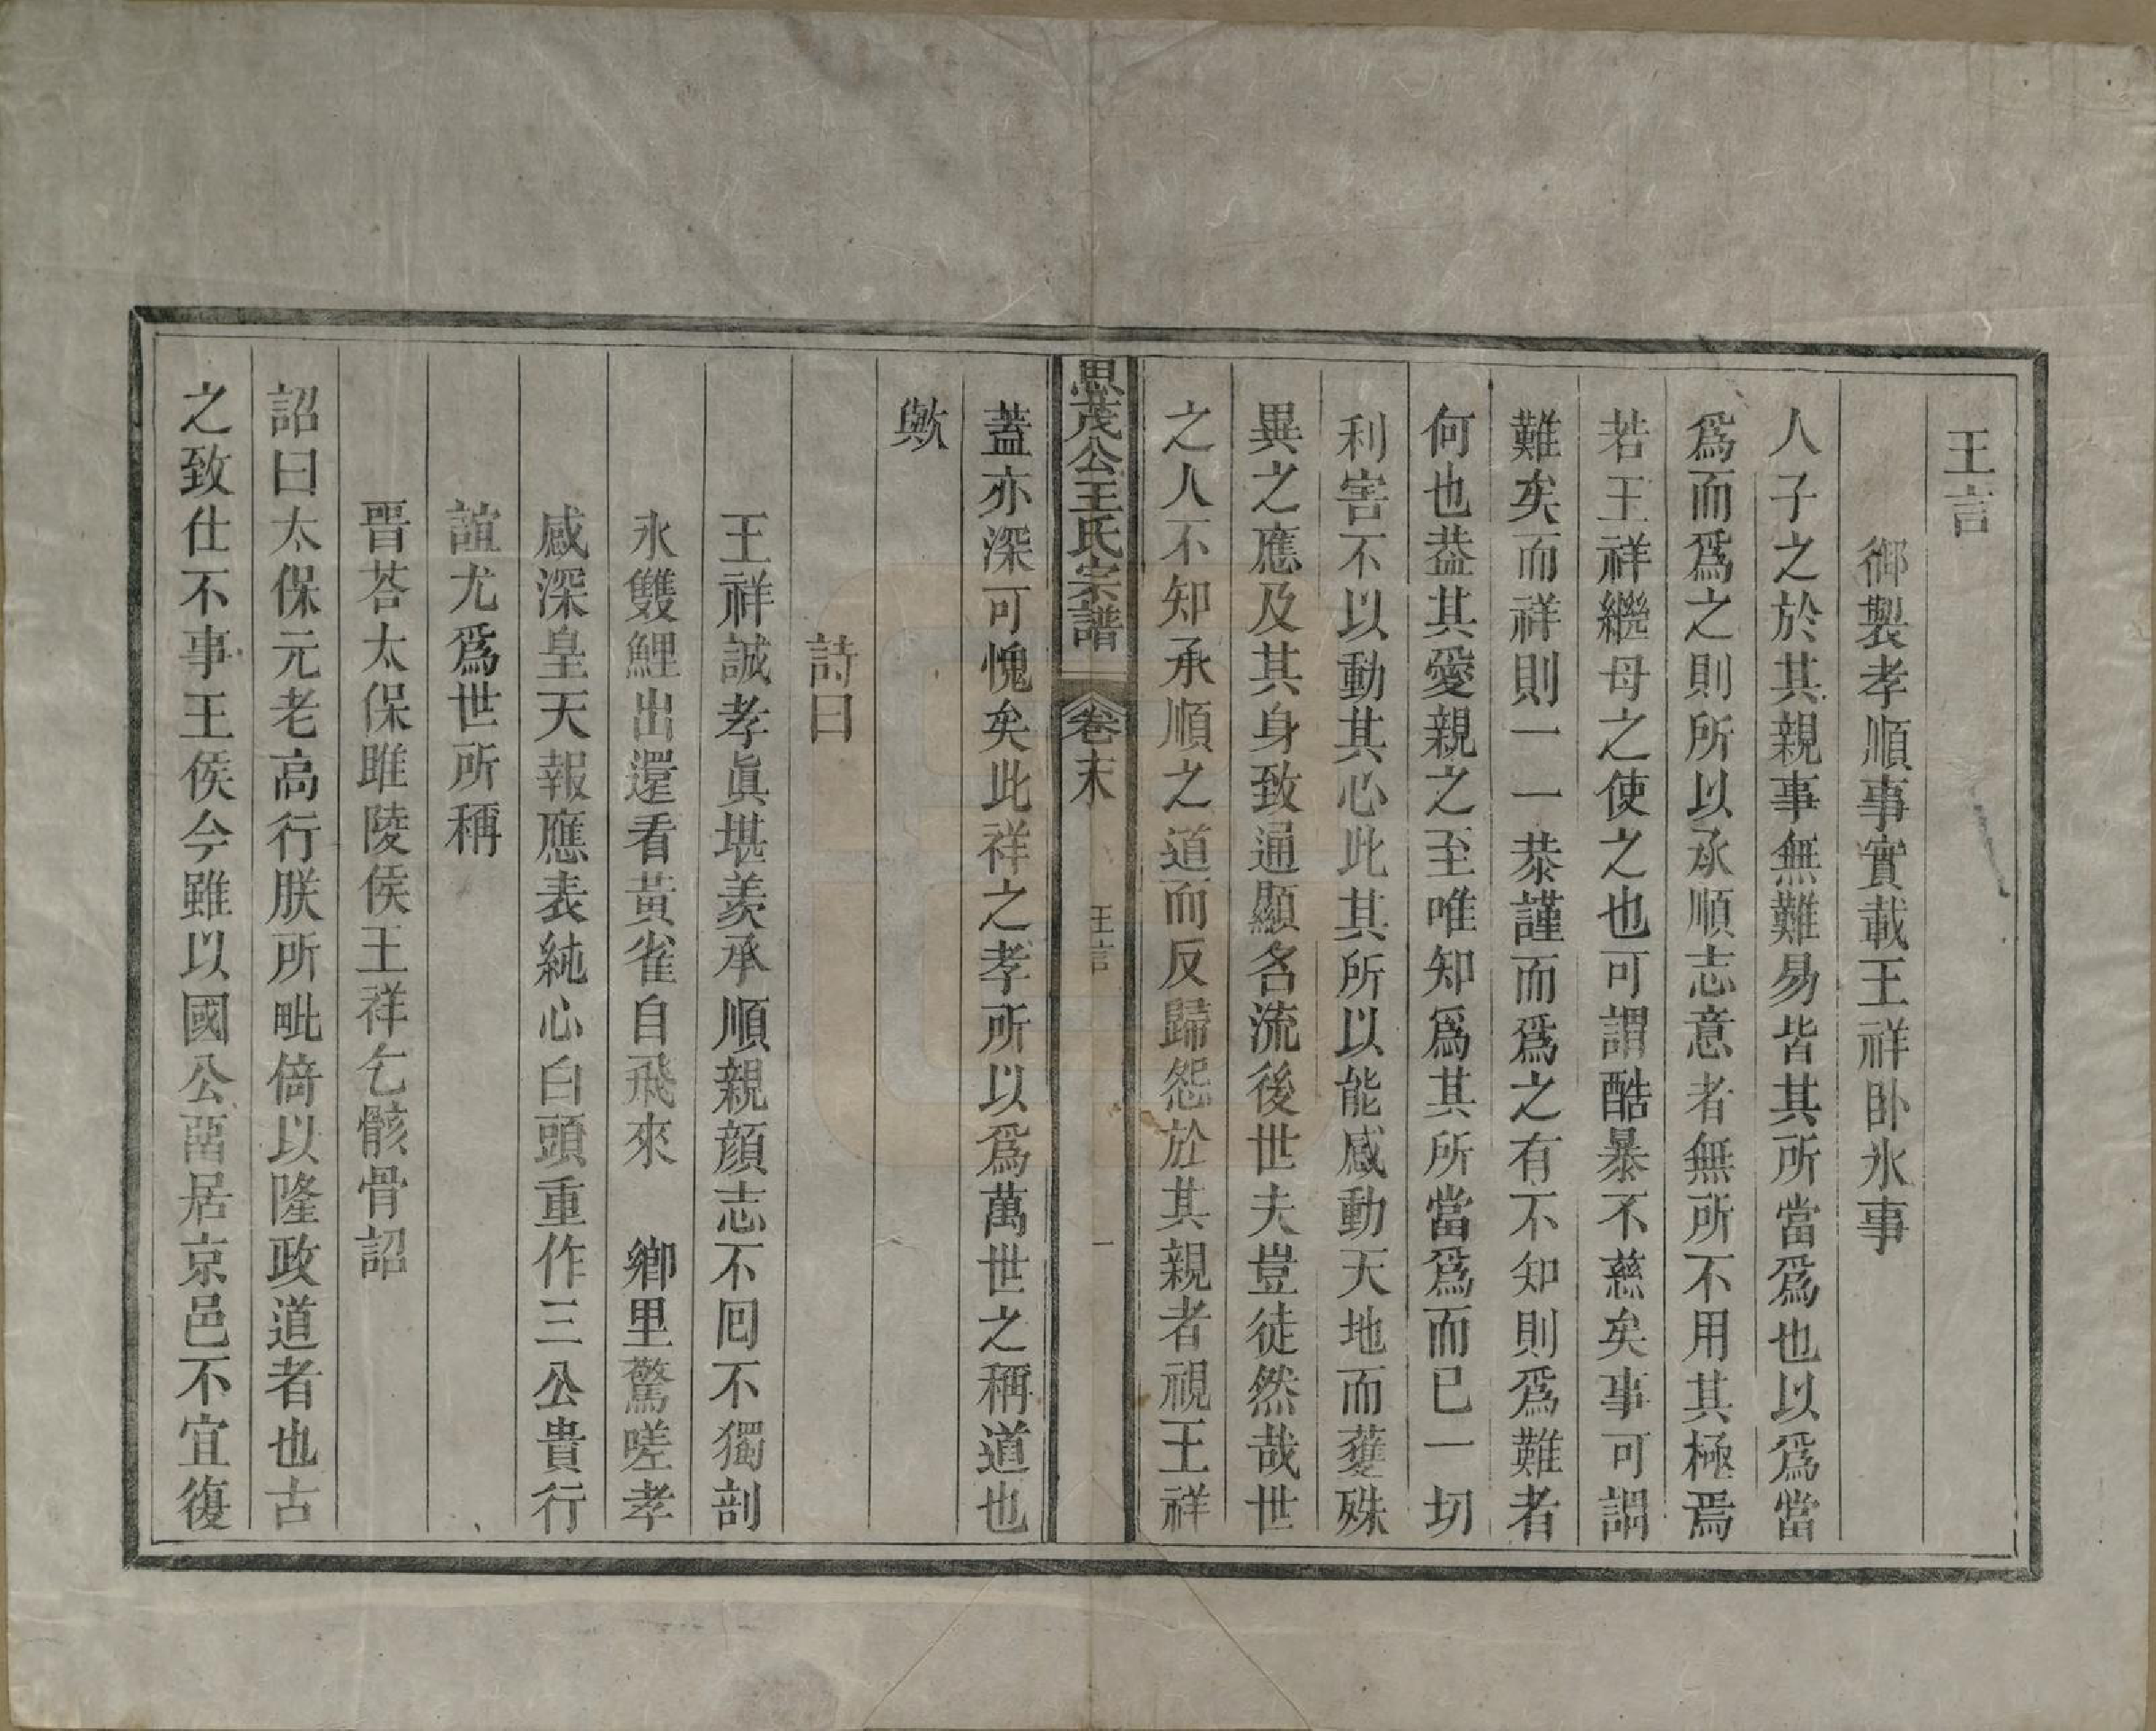 王言
御製孝順事實載王祥卧氷事
人子之於其親事無難易皆其所當爲也以爲當
爲而爲之則所以承順志意者無所不用其極焉
若王祥繼母之使之也可謂酷暴不慈矣事可謂
難矣而祥則一一恭謹而爲之有不知則爲難者
何也葢其愛親之至唯知爲其所當爲而已一切
利害不以動其心此其所以能感動天地而獲殊
異之應及其身致通顯名流後世夫豈徒然哉世
之人不知承順之道而反歸怨於其親者視王祥
思茂公王氏宗譜 卷末 王言 一
蓋亦深可愧矣此祥之孝所以爲萬世之稱道也
歟
詩曰
王祥誠孝眞堪羨承順親顔志不囘不獨剖
氷雙鯉出還看黃雀自飛來 鄉里驚嗟孝
感深皇天報應表純心白頭重作三公貴行
誼尤爲世所稱
晋荅太保睢陵侯王祥乞骸骨詔
詔曰太保元老高行朕所毗倚以隆政道者也古
之致仕不事王侯今雖以國公畱居京邑不宜復